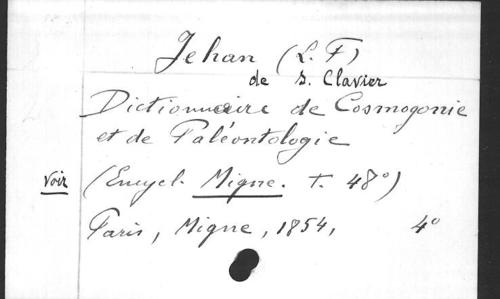 Jehan (L. F)
de S. Clavier
Dictionnaire de Cosmogonie
et de Paléontologie
Voir (Encycl. Migne. T. 48°)
Paris, Migne, 1854, 4°